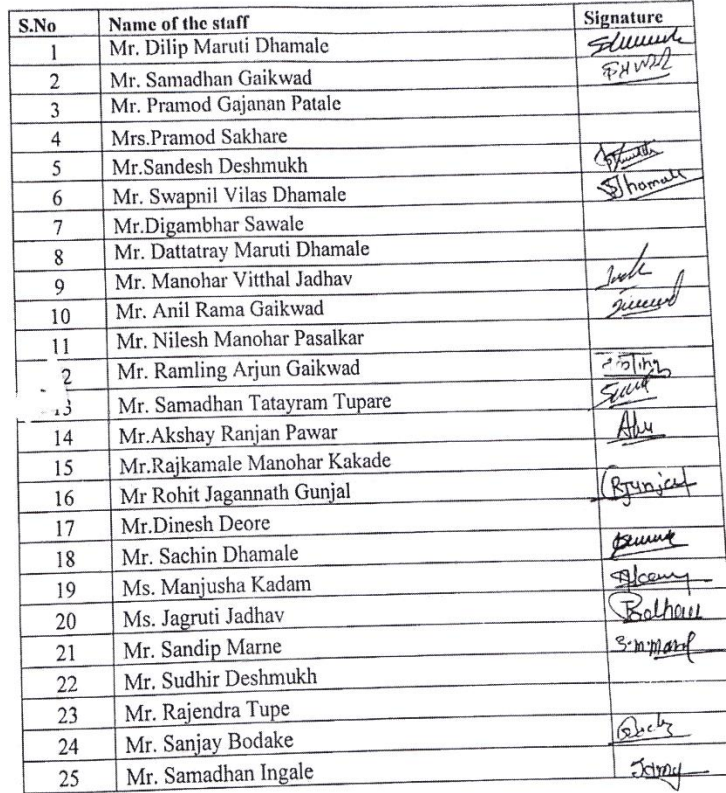 S.No Name of the staff Signature
1 Mr. Dilip Maruti Dhamale
2 Mr. Samadhan Gaikwad
3 Mr. Pramod Gajanan Patale
4 Mrs.Pramod Sakhare
5 Mr.Sandesh Deshmukh
6 Mr. Swapnil Vilas Dhamale
7 Mr.Digambhar Sawale
8 Mr. Dattatray Maruti Dhamale
9 Mr. Manohar Vitthal Jadhav
10 Mr. Anil Rama Gaikwad
11 Mr. Nilesh Manohar Pasalkar
2 Mr. Ramling Arjun Gaikwad
13 Mr. Samadhan Tatayram Tupare
14 Mr.Akshay Ranjan Pawar
15 Mr.Rajkamale Manohar Kakade
16 Mr Rohit Jagannath Gunjal
17 Mr.Dinesh Deore
18 Mr. Sachin Dhamale
19 Ms. Manjusha Kadam
20 Ms. Jagruti Jadhav
21 Mr. Sandip Marne
22 Mr. Sudhir Deshmukh
23 Mr. Rajendra Tupe
24 Mr. Sanjay Bodake
25 Mr. Samadhan Ingale